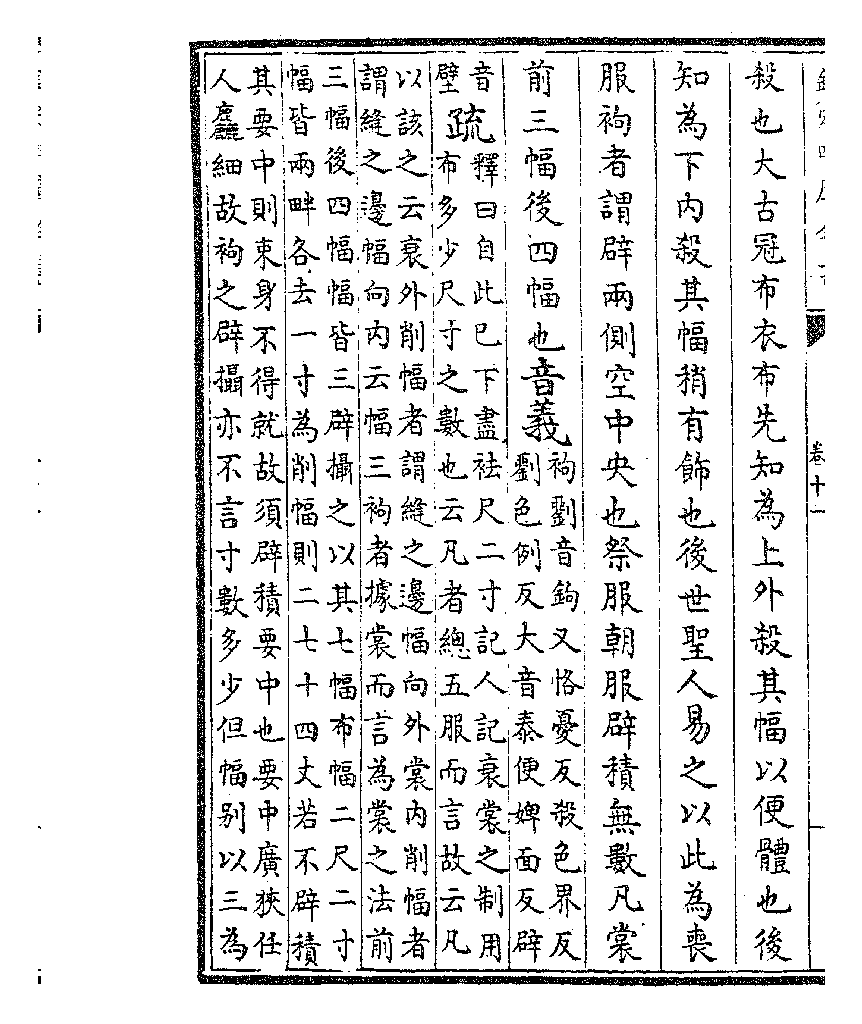 卷十一
殺也大古冠布衣布先知為上外殺其幅以便體也後
知為下內殺其幅稍有飾也後世聖人易之以此為喪
服袧者謂辟兩側空中央也祭服朝服辟積無數凡裳
前三幅後四幅也音義
袧劉音鉤又恪憂反殺色界反
劉色例反大音泰便婢面反辟
音
壁
疏
釋曰自此巳下盡袪尺二寸記人記衰裳之制用
布多少尺寸之數也云凡者總五服而言故云凡
以該之云衰外削幅者謂縫之邊幅向外裳內削幅者
謂縫之邊幅向內云幅三袧者據裳而言為裳之法前
三幅後四幅幅皆三辟攝之以其七幅布幅二尺二寸
幅皆兩畔各去一寸為削幅則二七十四丈若不辟積
其要中則束身不得就故須辟積要中也要中廣狹任
人麤細故袧之辟攝亦不言寸數多少但幅别以三為